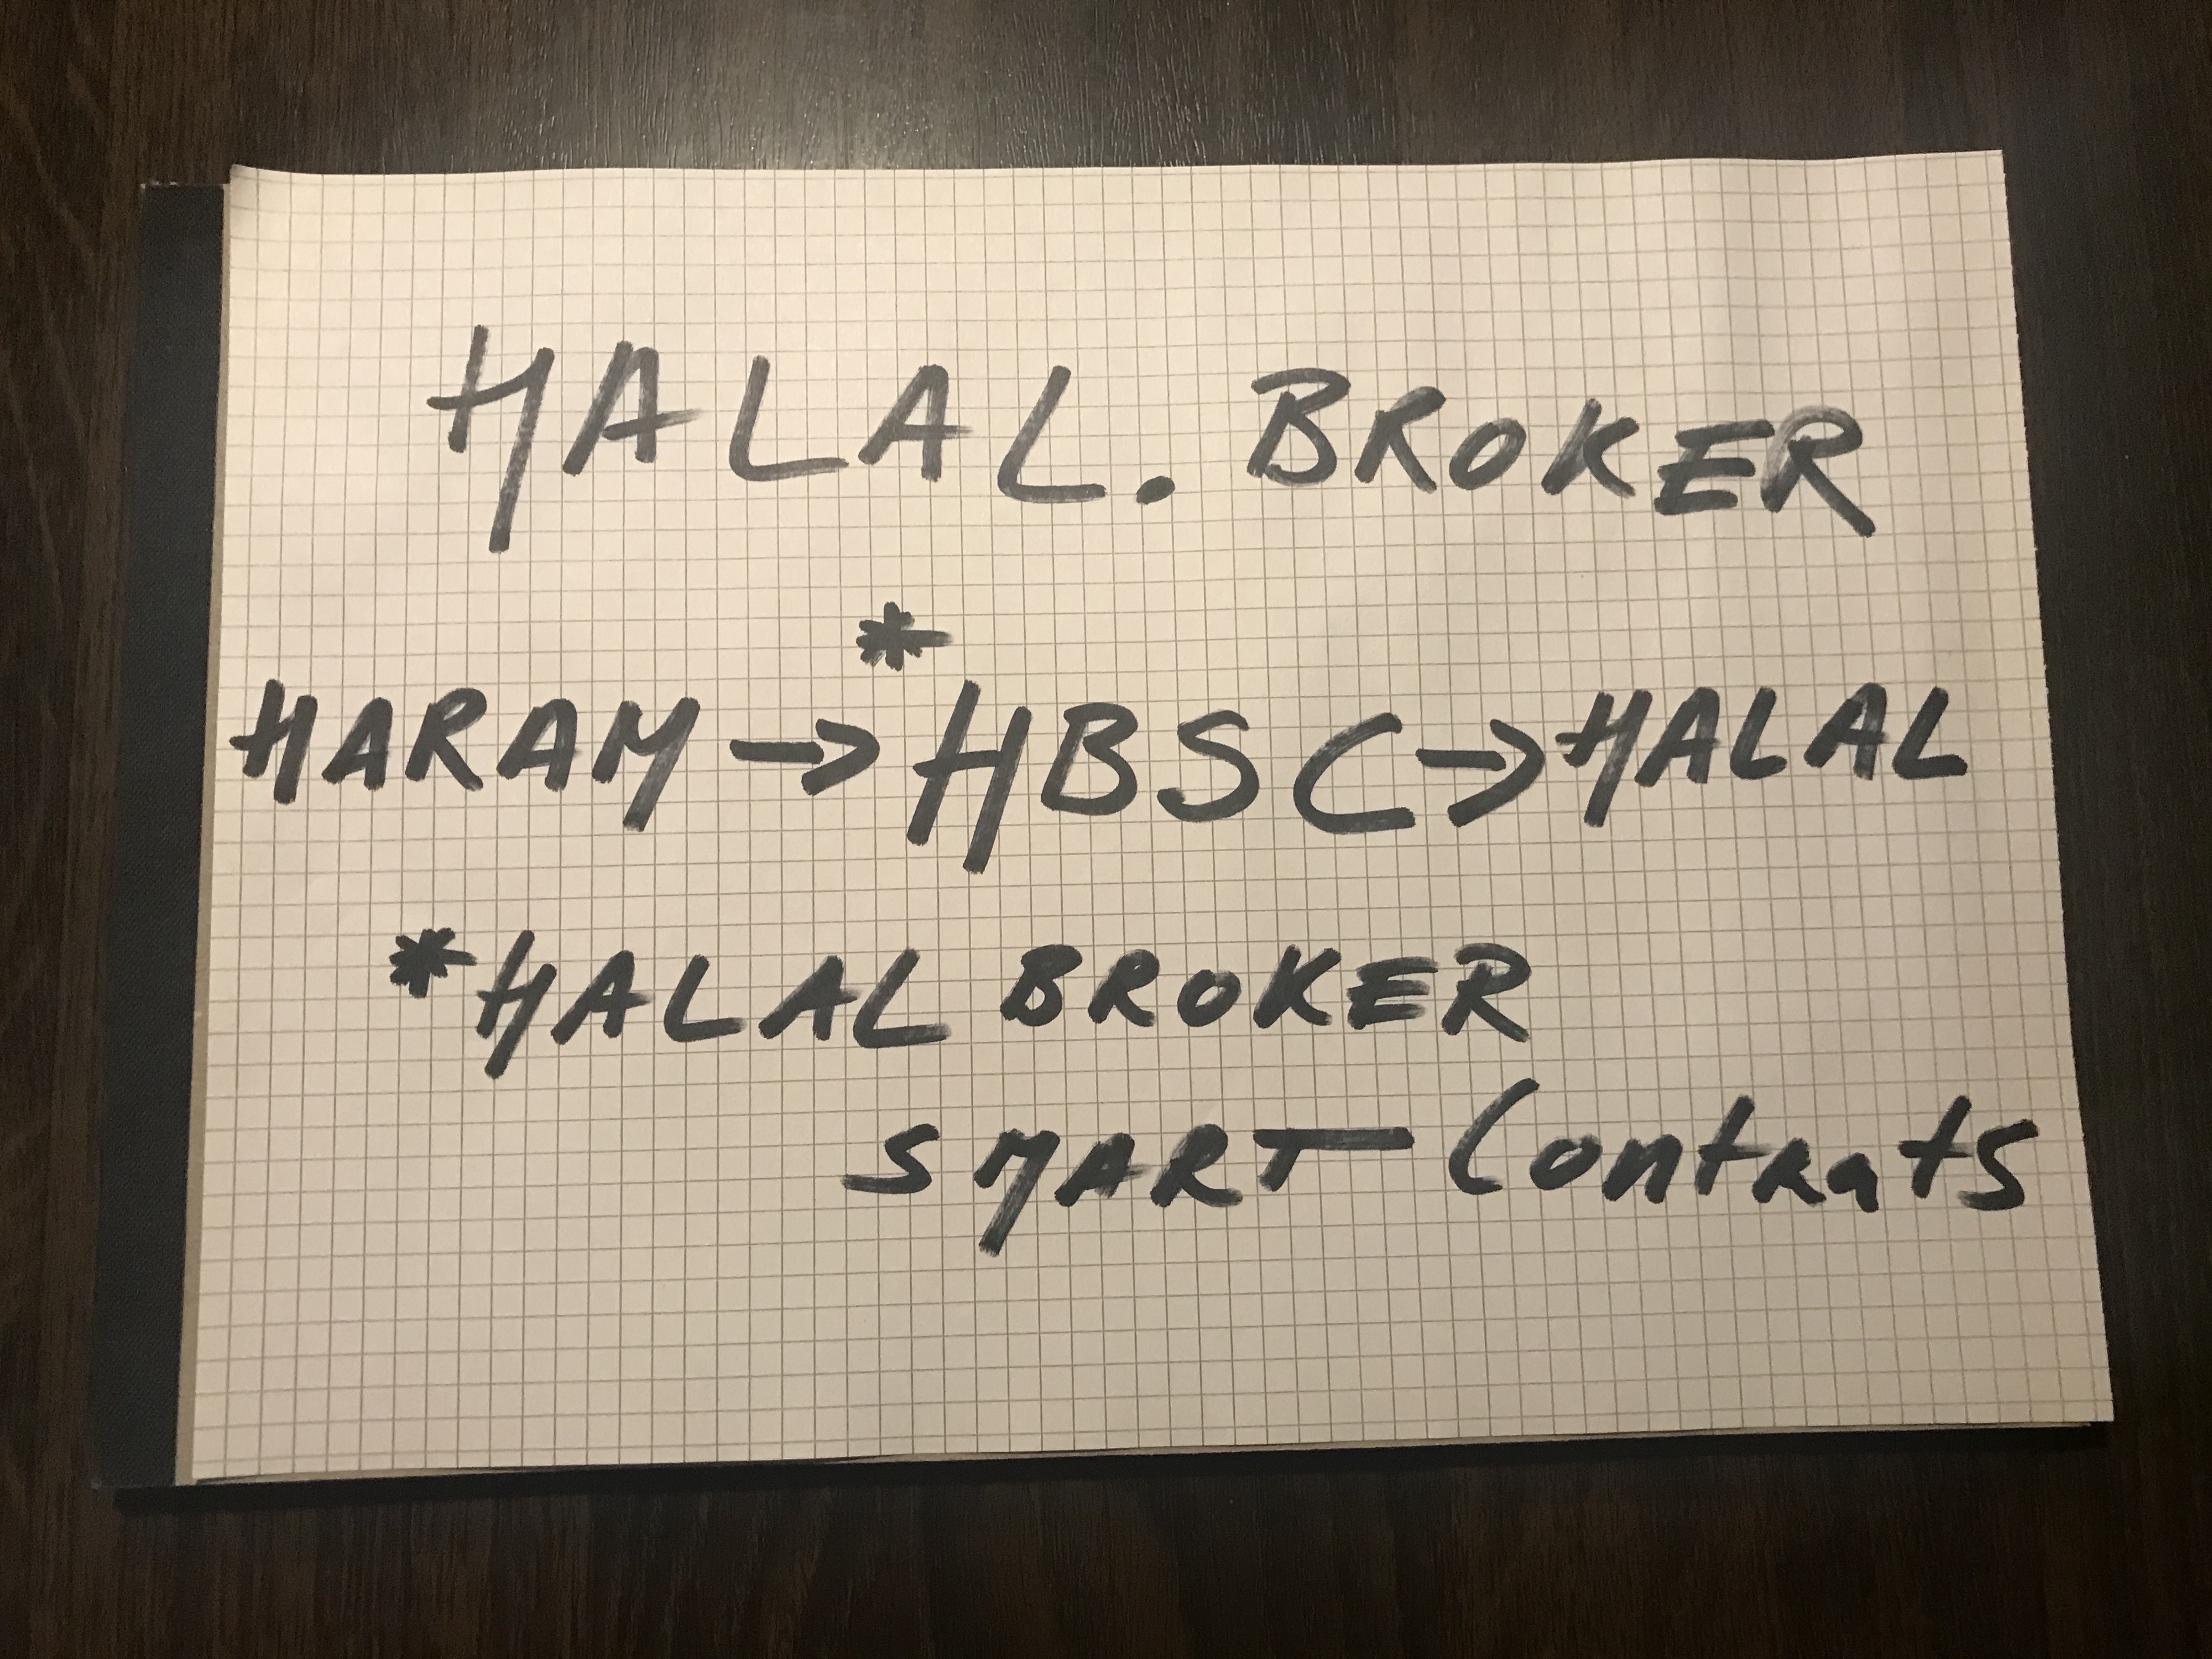 HALAL. BROKER
*
HARAM → HBSC → HALAL
*HALAL BROKER
SMART Contrats